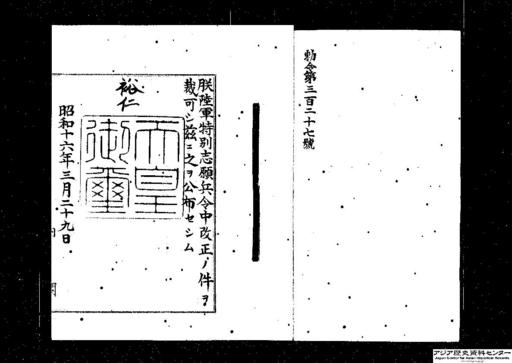 勅令第三百二十七號
朕陸軍特別志願兵令中改正ノ件ヲ
裁可シ茲ニ之ヲ公布セシム
裕仁
天皇
御璽
昭和十六年三月二十九日
アジア歴史資料センター
Japan Center for Asian Historical Records